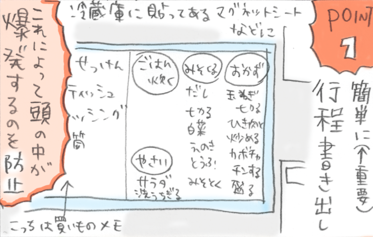 POINT 1
簡単に(←重要)
行程書き出し
冷蔵庫に貼ってあるマグネットシート
などに
おかず
玉ねぎ
切る
ひき肉と
炒める
カボチャ
チンする
盛る
みそしる
だし
切る
白菜
えのき
とうふ
みそとく
ごはん
炊く
やさい
サラダ
洗うちぎる
せっけん
ティッシュ
こっちは買いものメモ
これによって頭の中が
爆発するのを防止